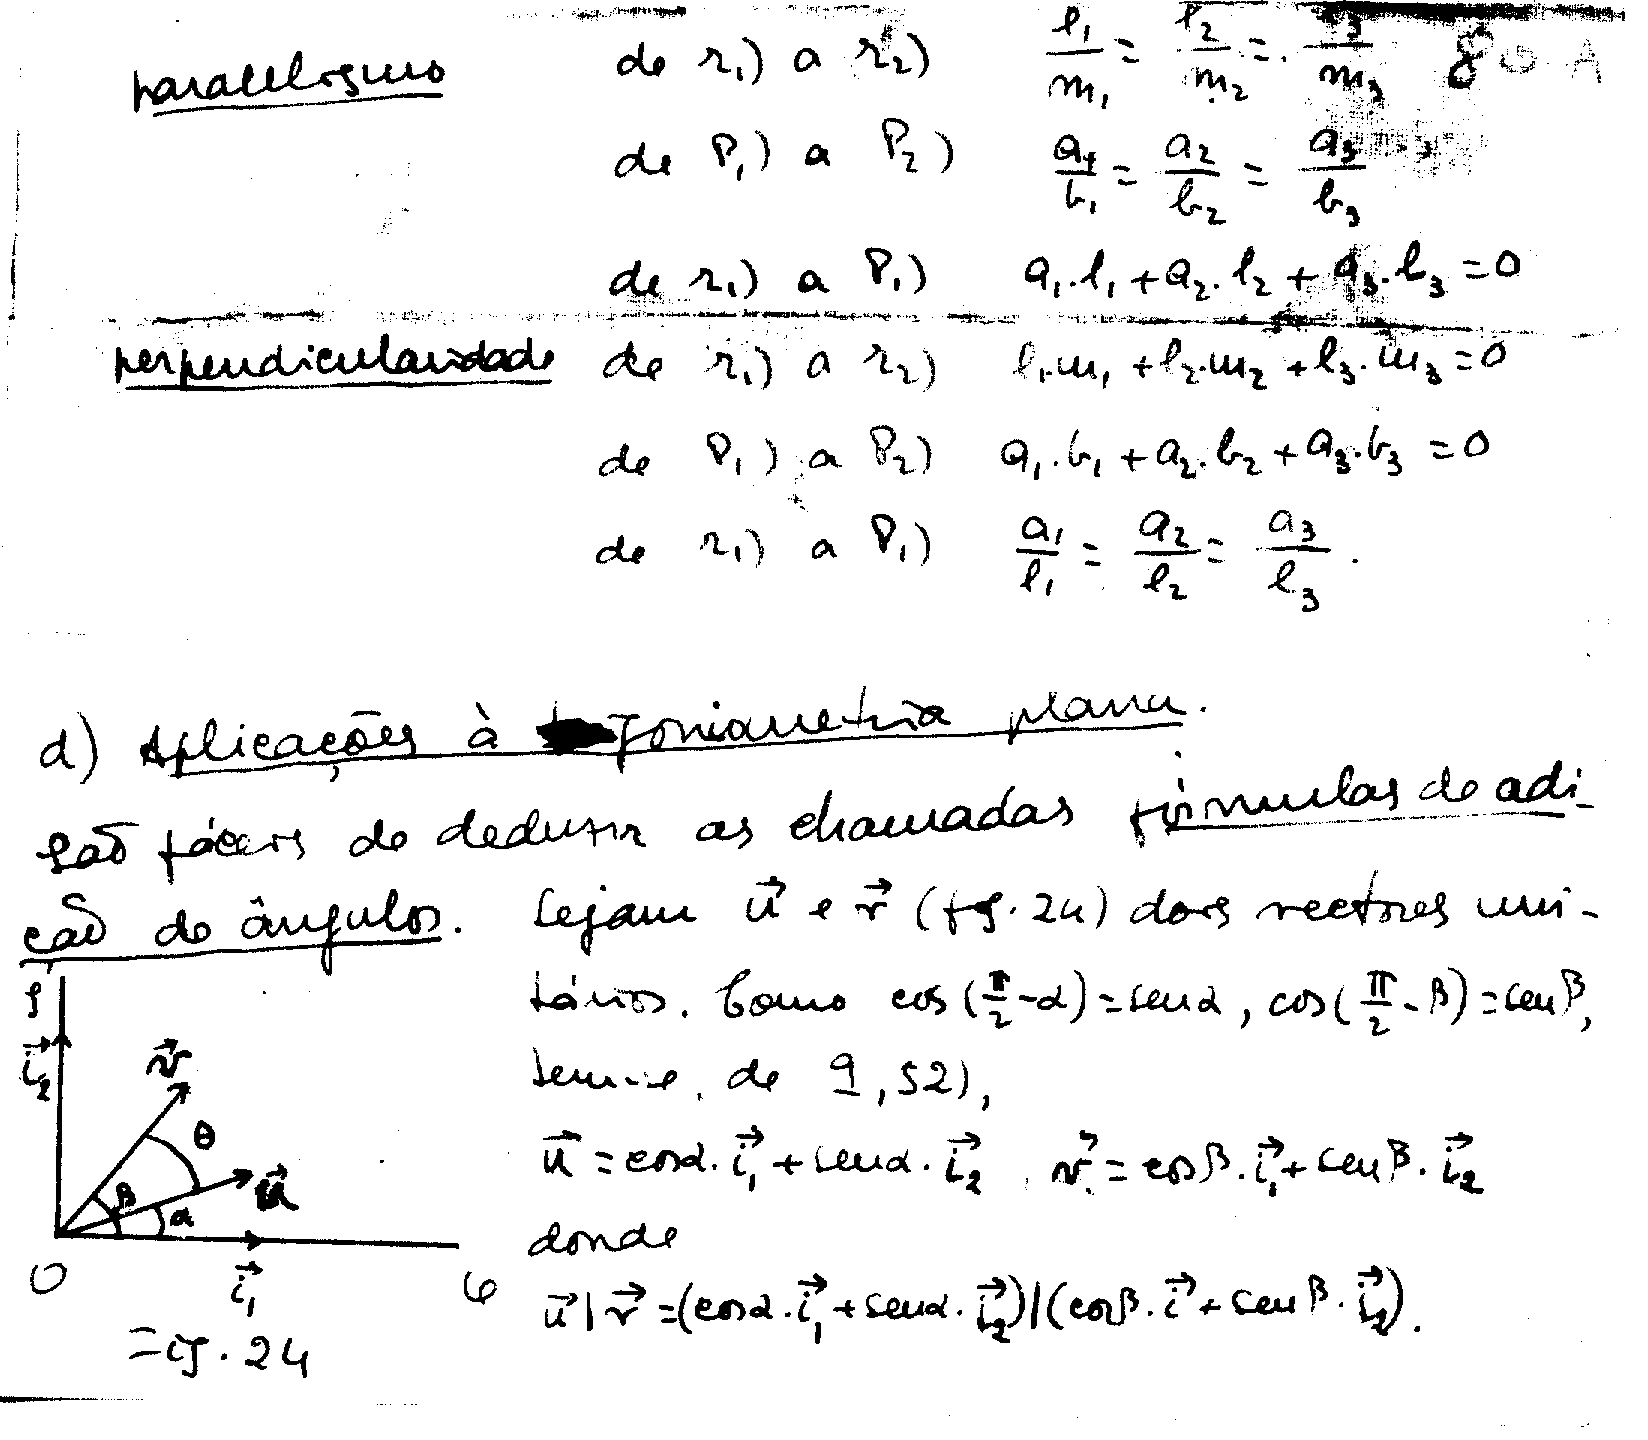 paralelismo de r₁) a r₂) l₁/m₁ = l₂/m₂ = l₃/m₃ 80 A
de P₁) a P₂) a₁/b₁ = a₂/b₂ = a₃/b₃
de r₁) a P₁) a₁.l₁ + a₂.l₂ + a₃.l₃ = 0
perpendicularidade de r₁) a r₂) l₁.m₁ + l₂.m₂ + l₃.m₃ = 0
de P₁) a P₂) a₁.b₁ + a₂.b₂ + a₃.b₃ = 0
de r₁) a P₁) a₁/l₁ = a₂/l₂ = a₃/l₃.
d) Aplicações à goniometria plana.
São fáceis de deduzir as chamadas fórmulas de adi-
ção de ângulos. Sejam u⃗ e v⃗ (fig. 24) dois vectores uni-
tários. Como cos(π/2 - α) = sen α, cos(π/2 - β) = sen β,
tem-se, de 9,52),
u⃗ = cos α. i⃗₁ + sen α. i⃗₂ , v⃗ = cos β. i⃗₁ + sen β. i⃗₂
donde
u⃗ | v⃗ = (cos α. i⃗₁ + sen α. i⃗₂) | (cos β. i⃗ + sen β. i⃗₂).
i⃗₂
v⃗
θ
u⃗
β
α
O
i⃗₁
Fig. 24